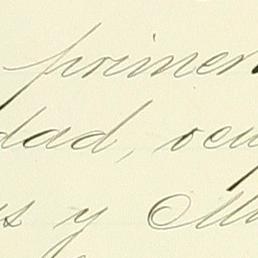 primer
dad, ocu
s y Mu